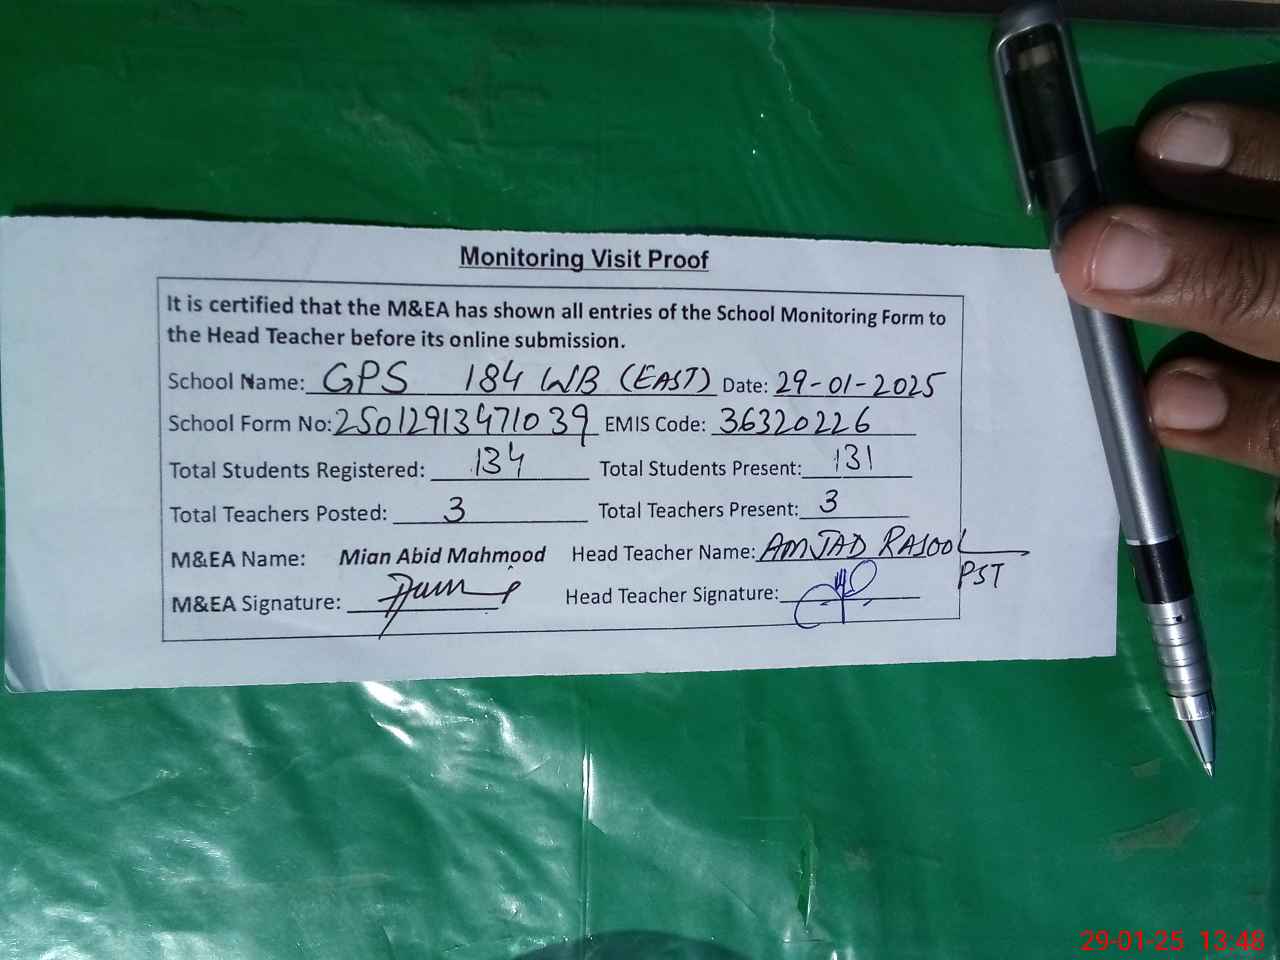 Monitoring Visit Proof
It is certified that the M&EA has shown all entries of the School Monitoring Form to
the Head Teacher before its online submission.
School Name: GPS 184 WB (EAST) Date: 29-01-2025
School Form No: 25012913471039 EMIS Code: 36320226
Total Students Registered: 134 Total Students Present: 131
Total Teachers Posted: 3 Total Teachers Present: 3
M&EA Name: Mian Abid Mahmood Head Teacher Name: AMJAD RASOOL
PST
M&EA Signature: Head Teacher Signature:
29-01-25 13:48